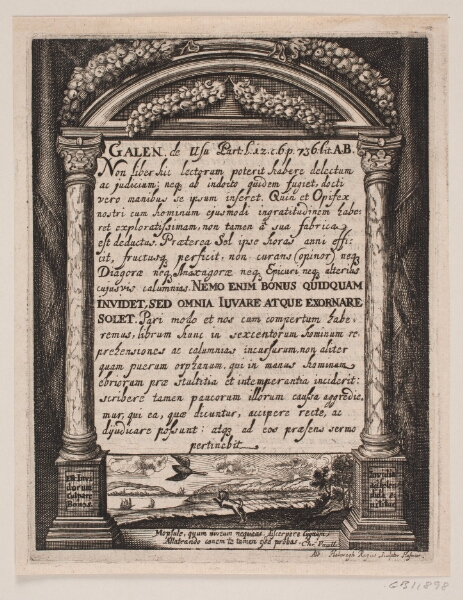 GALEN. de Usu Part. l. 12. c. 6 p. 736. lit. A.B.
Non liber hic lectorum poterit habere delectum
ac judicium: neq, ab indocto quidem fugiet, docti
vero manibus se ipsum inseret. Quin et Opifex
noster cum hominum ejusmodi ingratitudinem habe-
ret exploratissimam, non tamen a sua fabrica
est deductus. Præterea Sol ipse horas anni effi-
cit, fructusq, perficit, non curans (opinor) neq,
Diagoræ neq, Anaxagoræ neq, Epicuri neq, alterius
cujusvis calumnias. NEMO ENIM BONUS QUIDQUAM
INVIDET, SED OMNIA IUVARE ATQUE EXORNARE
SOLET. Pari modo et nos cum compertum habe-
remus, librum hunc in sexcentorum hominum re-
prehensiones ac calumnias incursurum, non aliter
quam puerum orphanum, qui in manus hominum
ebriorum præ stultitia et intemperantia inciderit:
scribere tamen paucorum illorum caussa aggredie-
mur, qui ea, quæ dicuntur, accipere recte, ac
djudicare possunt: atq, ad eos præsens sermo
pertinebit
Est Invi-
dorum
culpare
Bonos
et
Mopsule, quam niveum nequeas discerpere Cygnum,
Allatrando canem te tamen esse probas.
Alb. Haelwegh Regius Sculptor Hafniæ.
GB11898